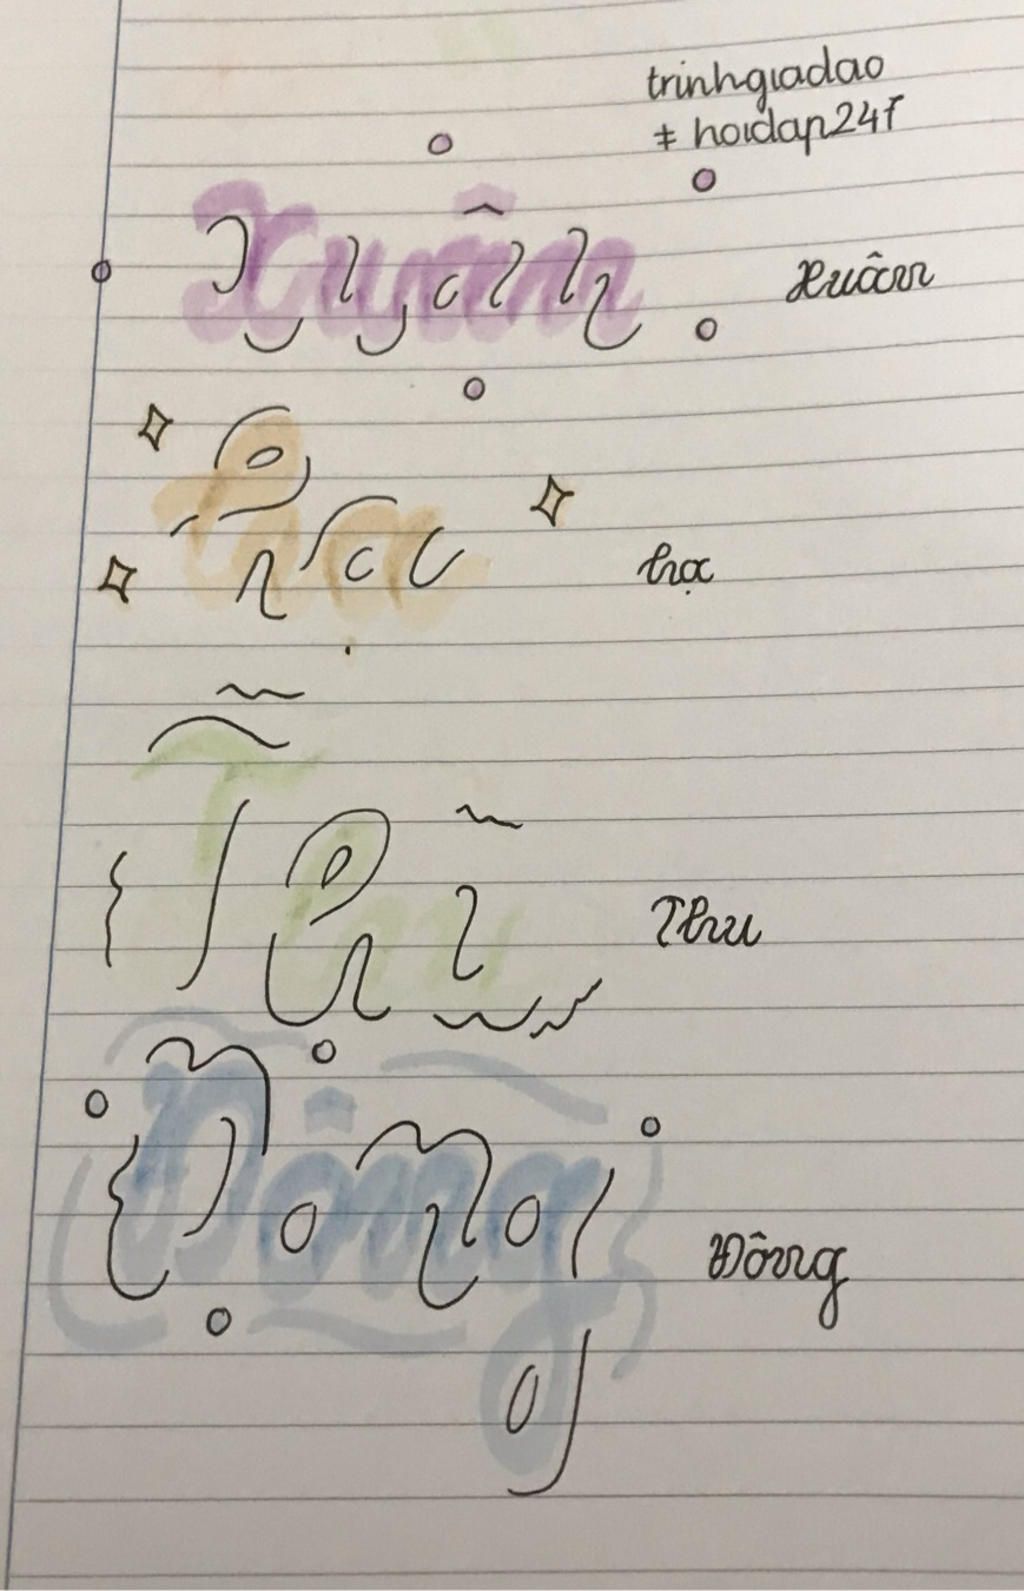 trinhgiadao
≠ hoidap247
Xuân Xuân
hạ hạ
Thu Thu
Đông Đông